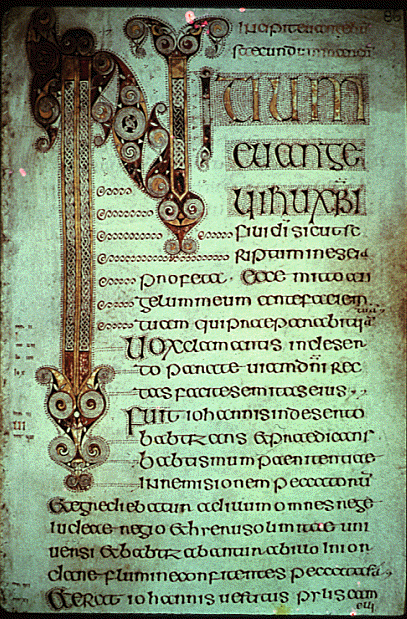 86
Incipit euangeliū
secundum marcum
INITIUM
EUANGE
LII IHU XPI
filii dī sicut sc
riptum in eseia
profeta Ecce mitto an
gelum meum ante faciem
tuam qui praeparabit uiā tuā
Uox clamantis in deser
to parate uiam dnī rec
tas facite semitas eius
Fuit iohannis in deserto
babtizans & praedicans
babtismum paenitentiae
in remisionem peccatorū
& egrediebatur ad illum omnes rege
iudeae regio & hierusolimitae uni
uersi & babtizabantur ab illo in ior
dane flumine confitentes peccata sua
& erat iohannis uestitus pylis cam
eli